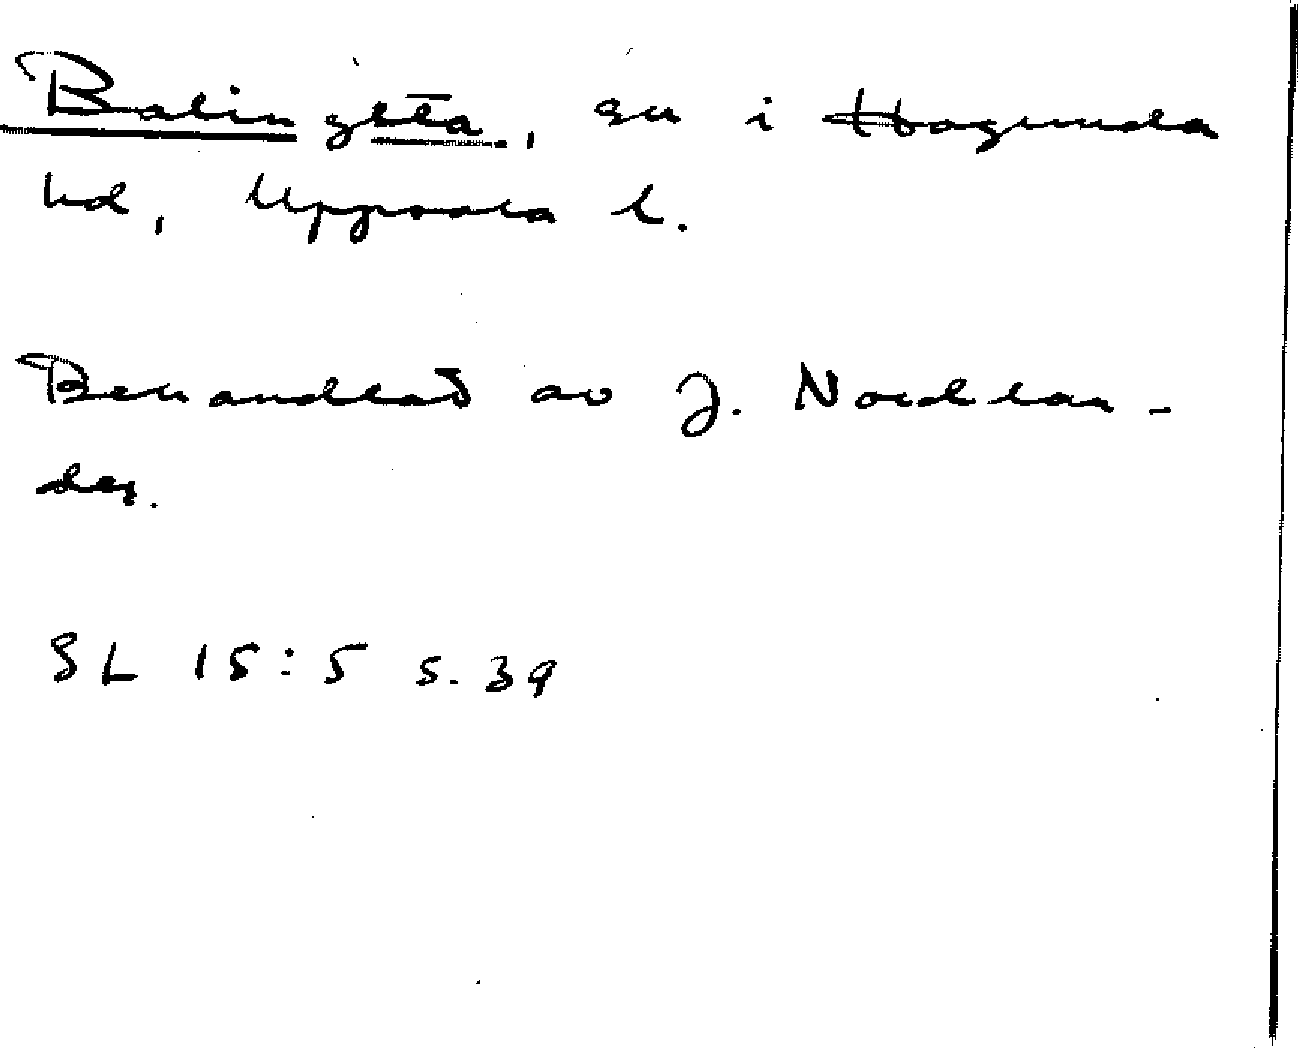 Balingsta, sn i Hagunda
hd, Uppsala l.
Behandlat av J. Nordlan-
der.
SL 15:5 s. 39